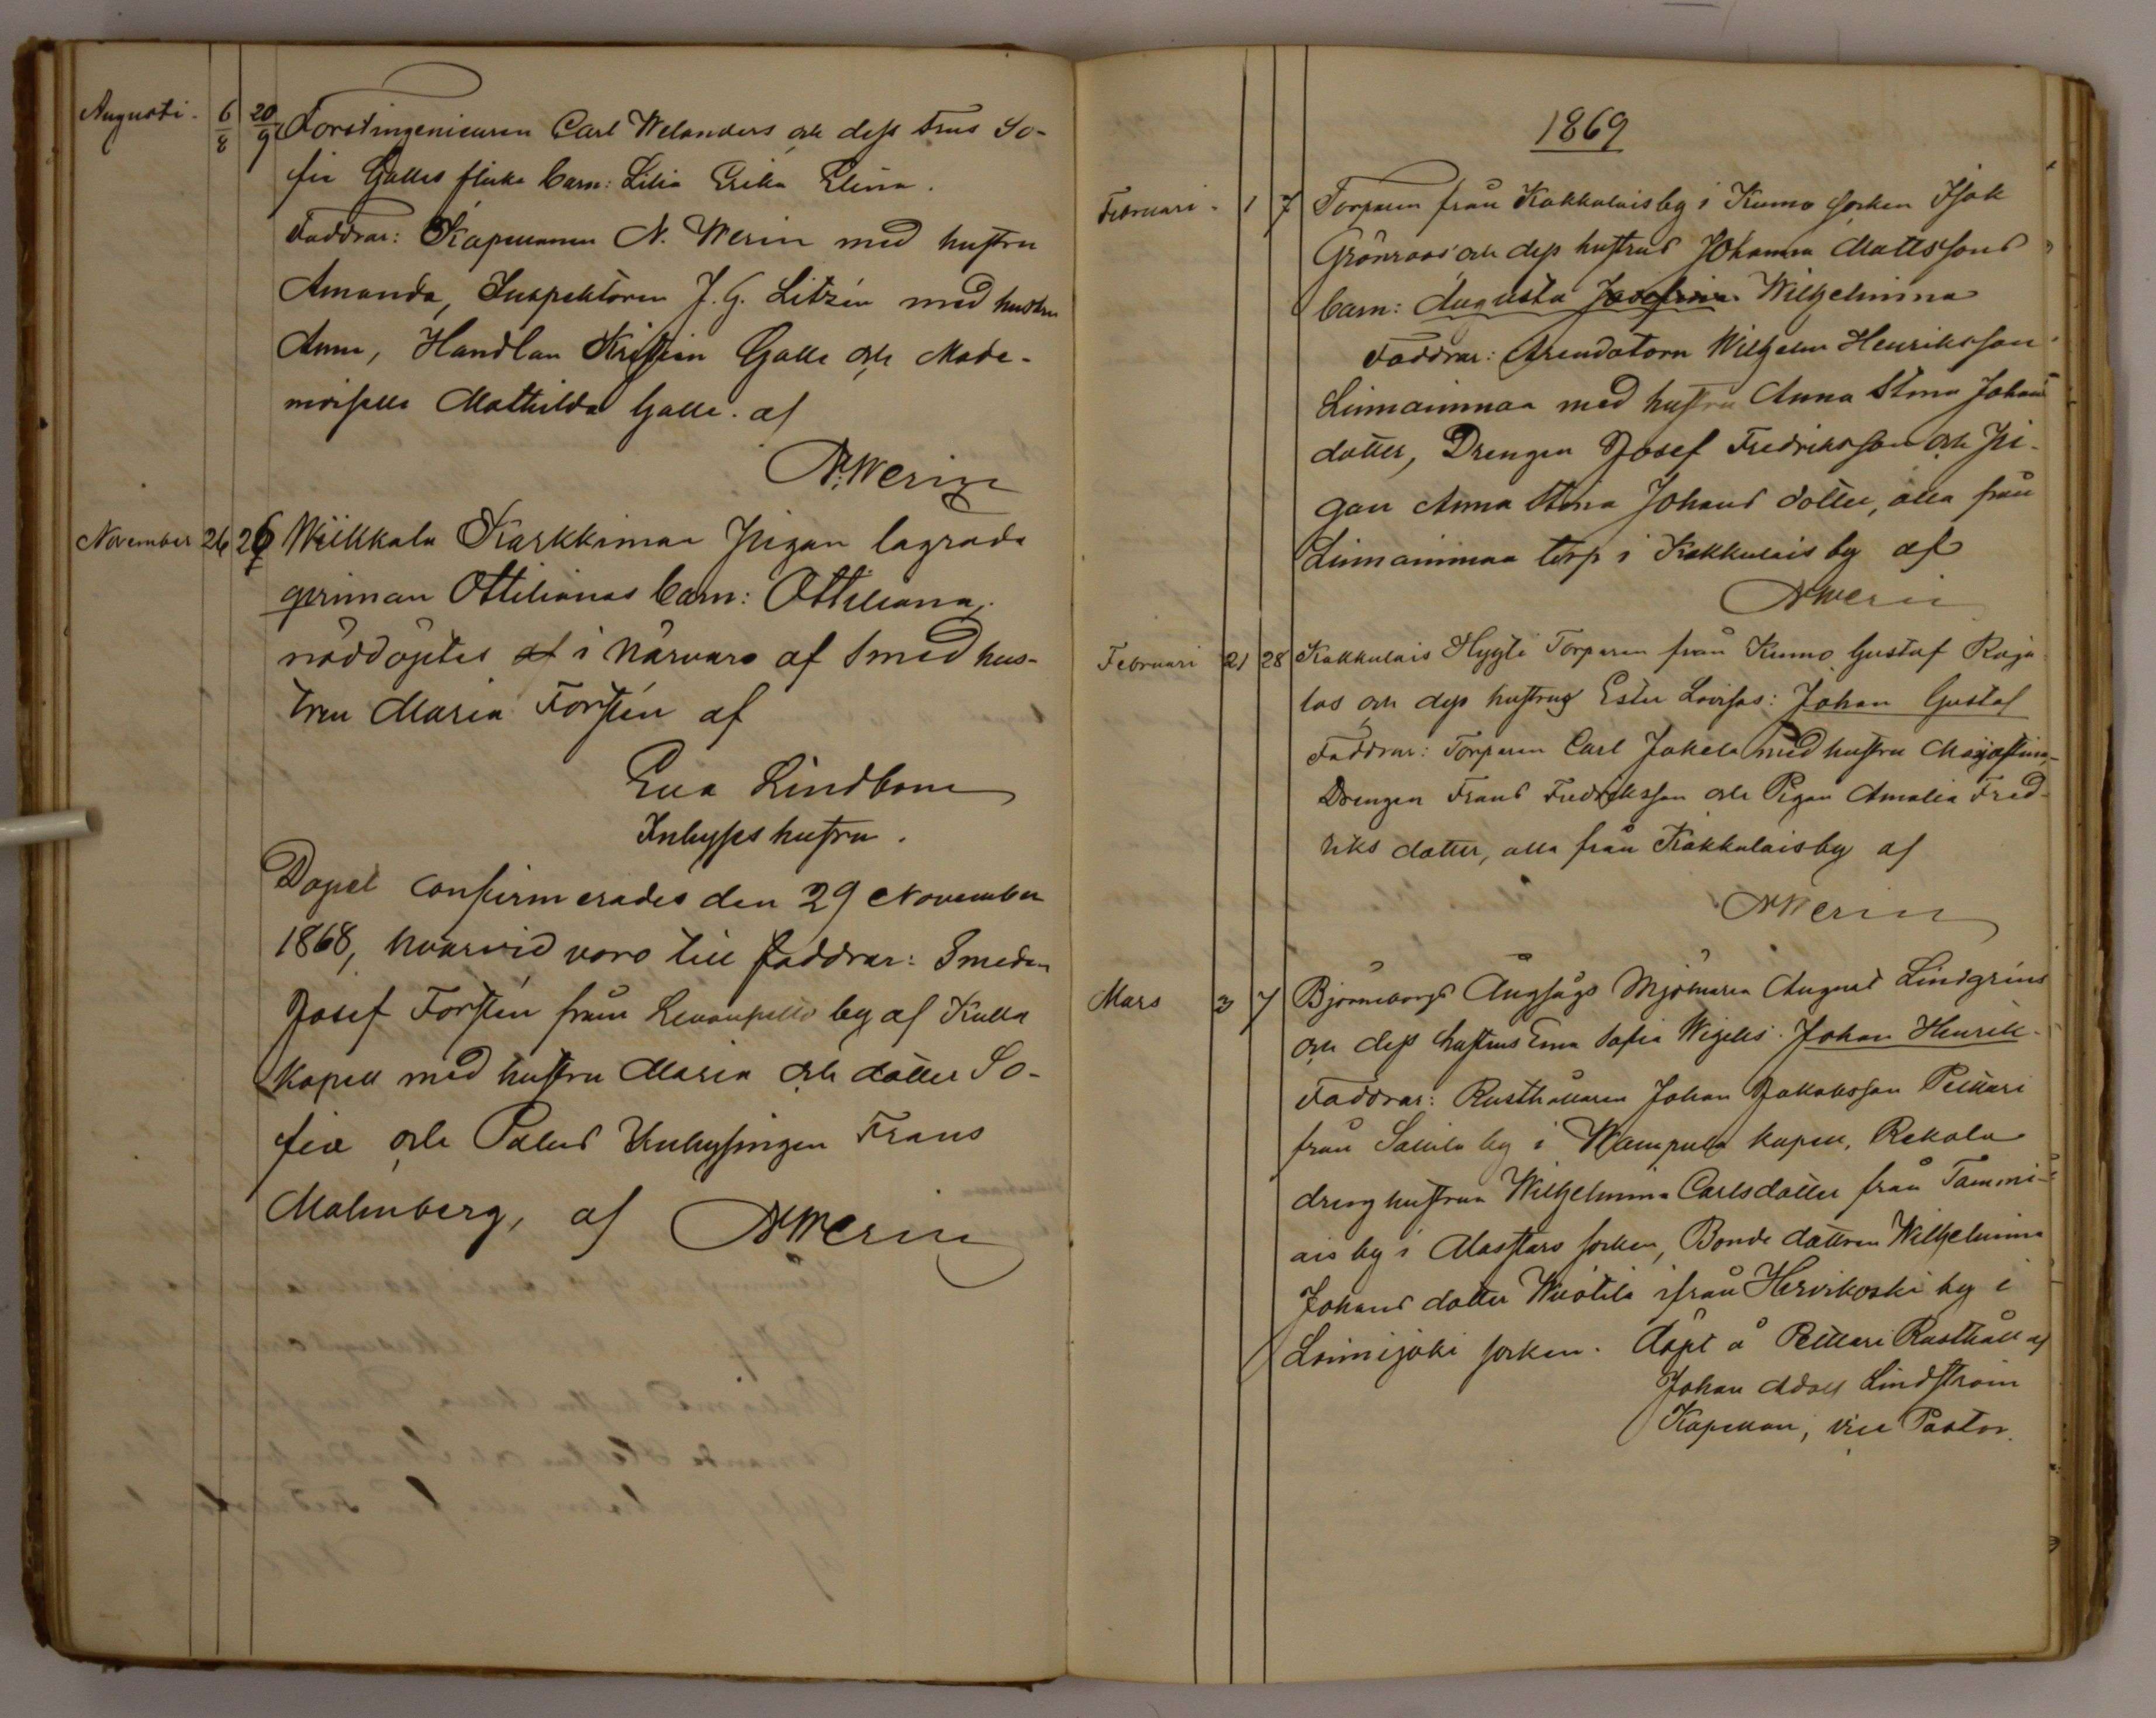 Augusti. 6/8 20/9 Forstingenieuren Carl Welanders och dess Frus So-
fie Galles flicka barn: Lilia Erika Elina.
Faddrar: Kapellanen N. Werin med hustru
Amanda, Inspektoren J. G. Litzén med hustru
Anna, Handlan Kristian Galle och Made-
moiselle Mathilda Galle. af
N. Werin
November 26 26 Wiikkala Karkkimaa Pigan lagrada
qvinnan Ottilianas barn: Ottiliana,
nöddöptes i närvaro af Smed hus-
trun Maria Forstén af
Eva Lindbom
Inhyses hustru.
Dopet confirmerades den 29 November
1868, hvarvid voro till faddrar: Smeden
Josef Forstén från by af Kulla
Kapell med hustru Maria och dotter So-
fia och Inhysingen Frans
Malmberg, af N Werin
1869
Februari. 1 7 Torparen från Kakkulais by i Kumo socken Isak
Grönroos och dess hustrus Johanna Mattssons
barn: Augusta Josefina Wilhelmina
Faddrar: Arendatorn Wilhelm Henriksson
Linnainmaa med hustru Anna Stina Johans
dotter, Drengen Josef Fredriksson och Pi-
gan Anna Stina Johans dotter, alla från
Linnainmaa torp i Kakkulais by af
N Werin
Februari 21 28 Kakkulais Hyyti Torparen från Kumo Gustaf Raja
las och dess hustrus Ester Lovisas: Johan Gustaf
Faddrar: Torparen Carl Jakola med hustru Majastina,
Drengen Frans Fredriksson och Pigan Amalia Fred-
riks dotter, alla från Kakkulais by af
N Werin
Mars 3 7 Björneborgs Ångsågs Mjölnaren August Lindgréns
och dess hustrus Ema Sofia Wigelis: Johan Henrik.
Faddrar: Rusthållaren Johan Jakobsson Peltari
från Sallila by i Wampula kapell, Rekola
dreng hustrun Wilhelmina Carlsdotter från Tammi-
ais by i Alastaro socken, Bonde dottren Wilhelmina
Johans dotter ifrån Hirvikoski by i
Loimijoki socken. döpt å Peltari Rusthåll af
Johan Adolf Lindström
Kapellan, vice Pastor.